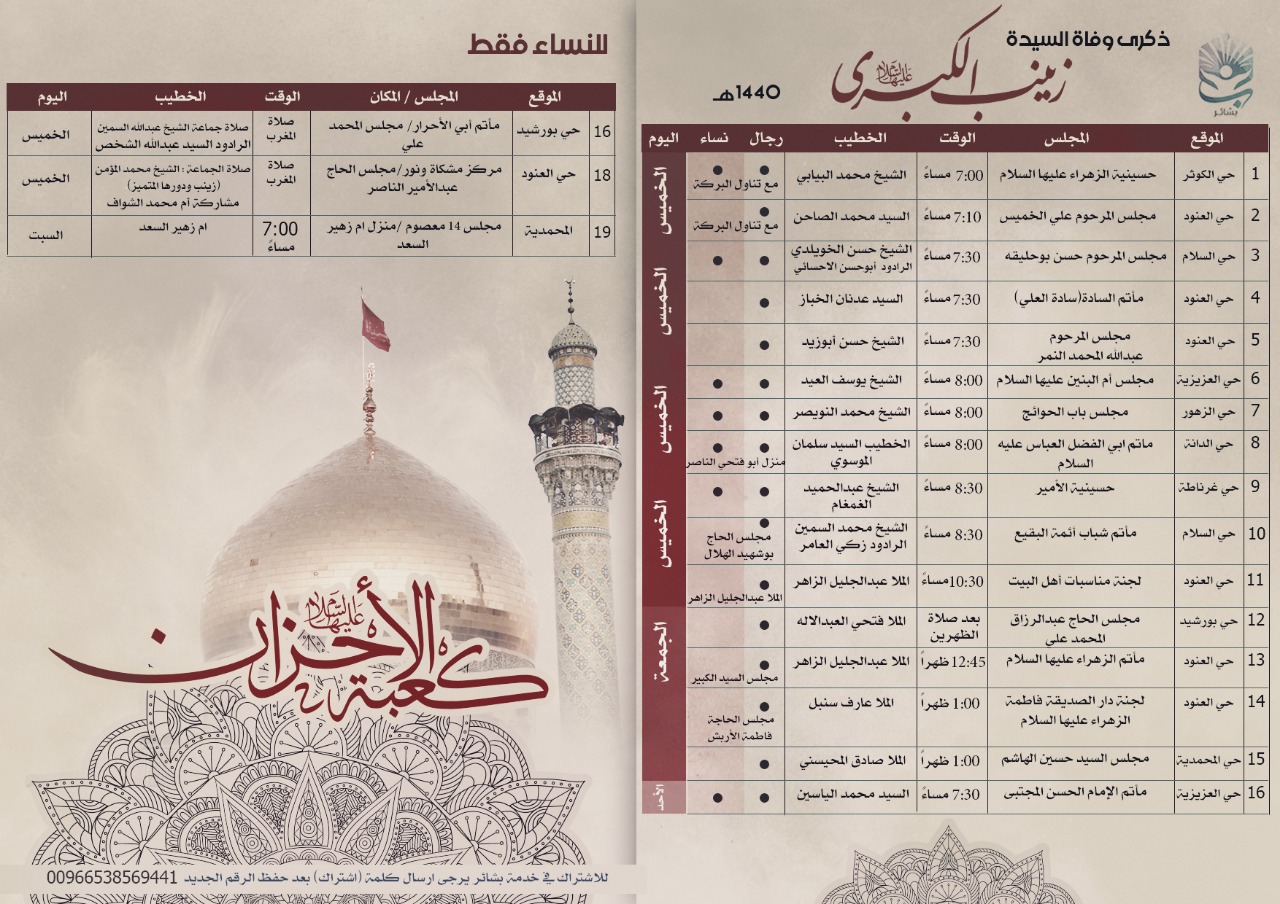 ذكرى وفاة السيدة
زينب الكبرى
عليها السلام
1440هـ
بشائر
الموقع المجلس الوقت الخطيب رجال نساء اليوم
1 حي الكوثر حسينية الزهراء عليها السلام 7:00 مساءً الشيخ محمد البيابي ● ● مع تناول البركة
2 حي العنود مجلس المرحوم علي الخميس 7:10 مساءً السيد محمد الصاحن ● مع تناول البركة
الخميس
3 حي السلام مجلس المرحوم حسن بوحليقه 7:30 مساءً الشيخ حسن الخويلدي ● ●
الرادود أبوحسن الاحسائي
4 حي العنود مأتم السادة(سادة العلي) 7:30 مساءً السيد عدنان الخباز ●
الخميس
5 حي العنود مجلس المرحوم 7:30 مساءً الشيخ حسن أبوزيد ●
عبدالله المحمد النمر
6 حي العزيزية مجلس أم البنين عليها السلام 8:00 مساءً الشيخ يوسف العيد ● ●
7 حي الزهور مجلس باب الحوائج 8:00 مساءً الشيخ محمد النويصر ● ●
الخميس
8 حي الدانة ماتم ابي الفضل العباس عليه 8:00 مساءً الخطيب السيد سلمان ● ●
السلام الموسوي منزل أبو فتحي الناصر
9 حي غرناطة حسينية الأمير 8:30 مساءً الشيخ عبدالحميد ● ●
الغمغام
10 حي السلام مأتم شباب أئمة البقيع 8:30 مساءً الشيخ محمد السمين ● مجلس الحاج
الرادود زكي العامر بوشهيد الهلال
الخميس
11 حي العنود لجنة مناسبات أهل البيت 10:30مساءً الملا عبدالجليل الزاهر ●
الملا عبدالجليل الزاهر
12 حي بورشيد مجلس الحاج عبدالرزاق بعد صلاة الملا فتحي العبدالاله ●
المحمد علي الظهرين
الجمعة
13 حي العنود مأتم الزهراء عليها السلام 12:45 ظهراً الملا عبدالجليل الزاهر ●
مجلس السيد الكبير
14 حي العنود لجنة دار الصديقة فاطمة 1:00 ظهراً الملا عارف سنبل ●
الزهراء عليها السلام مجلس الحاجة
فاطمة الأربش
15 حي المحمدية مجلس السيد حسين الهاشم 1:00 ظهراً الملا صادق المحيسني ●
16 حي العزيزية مأتم الإمام الحسن المجتبى 7:30 مساءً السيد محمد الياسين ● ● الأحد
للنساء فقط
الموقع المجلس / المكان الوقت الخطيب اليوم
16 حي بورشيد مأتم أبي الأحرار/ مجلس المحمد صلاة صلاة جماعة الشيخ عبدالله السمين الخميس
علي المغرب الرادود السيد عبدالله الشخص
18 حي العنود مركز مشكاة ونور/مجلس الحاج صلاة صلاة الجماعة : الشيخ محمد المؤمن الخميس
عبدالأمير الناصر المغرب (زينب ودورها المتميز)
مشاركة أم محمد الشواف
19 المحمدية مجلس 14 معصوم /منزل ام زهير 7:00 ام زهير السعد السبت
السعد مساءً
كعبة الأحزان
عليها السلام
للاشتراك في خدمة بشائر يرجى ارسال كلمة (اشتراك) بعد حفظ الرقم الجديد 00966538569441